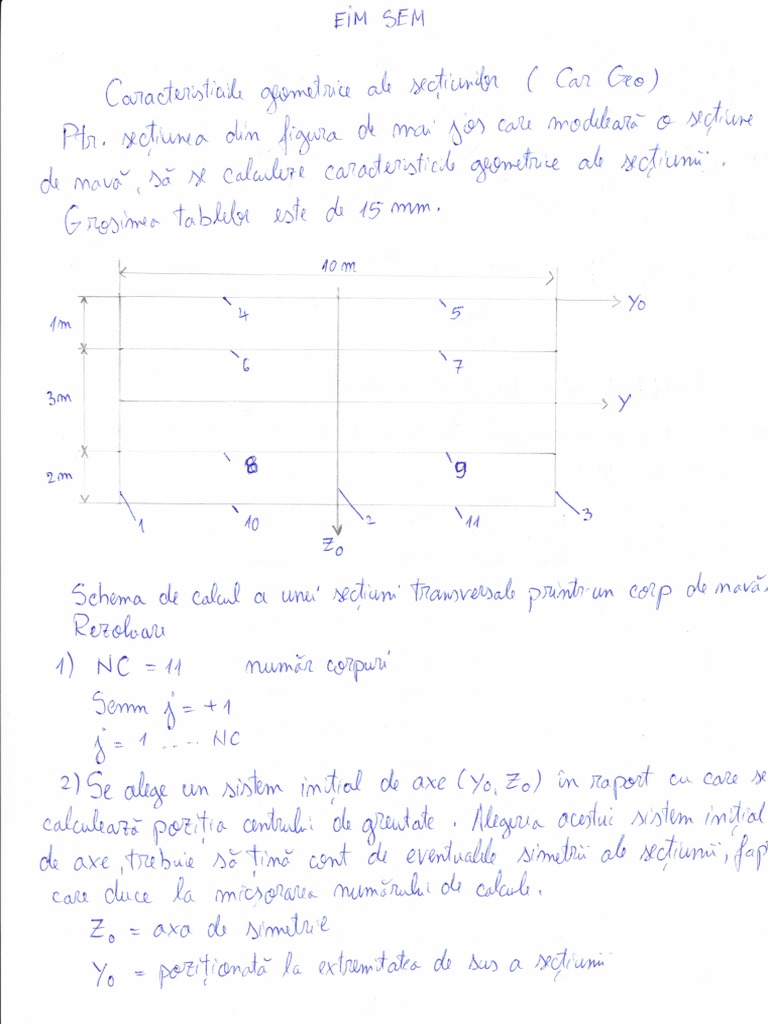 EIM SEM
Caracteristicile geometrice ale secțiunilor ( Car Geo)
Ptr. secțiunea din figura de mai jos care modelează o secțiune
de navă, să se calculeze caracteristicile geometrice ale secțiunii.
Grosimea tablelor este de 15 mm.
10 m
4 5 Yo
1m
6 7
3m Y
8 9
2m
1 10 2 11 3
Zo
Schema de calcul a unei secțiuni transversale printr-un corp de navă.
Rezolvare
1) NC = 11 număr corpuri
Semn j = +1
j = 1 .... NC
2) Se alege un sistem inițial de axe (Yo, Zo) în raport cu care se
calculează poziția centrului de greutate. Alegerea acestui sistem inițial
de axe, trebuie să țină cont de eventualele simetrii ale secțiunii, fapt
care duce la micșorarea numărului de calcule.
Zo = axa de simetrie
Yo = poziționată la extremitatea de sus a secțiunii